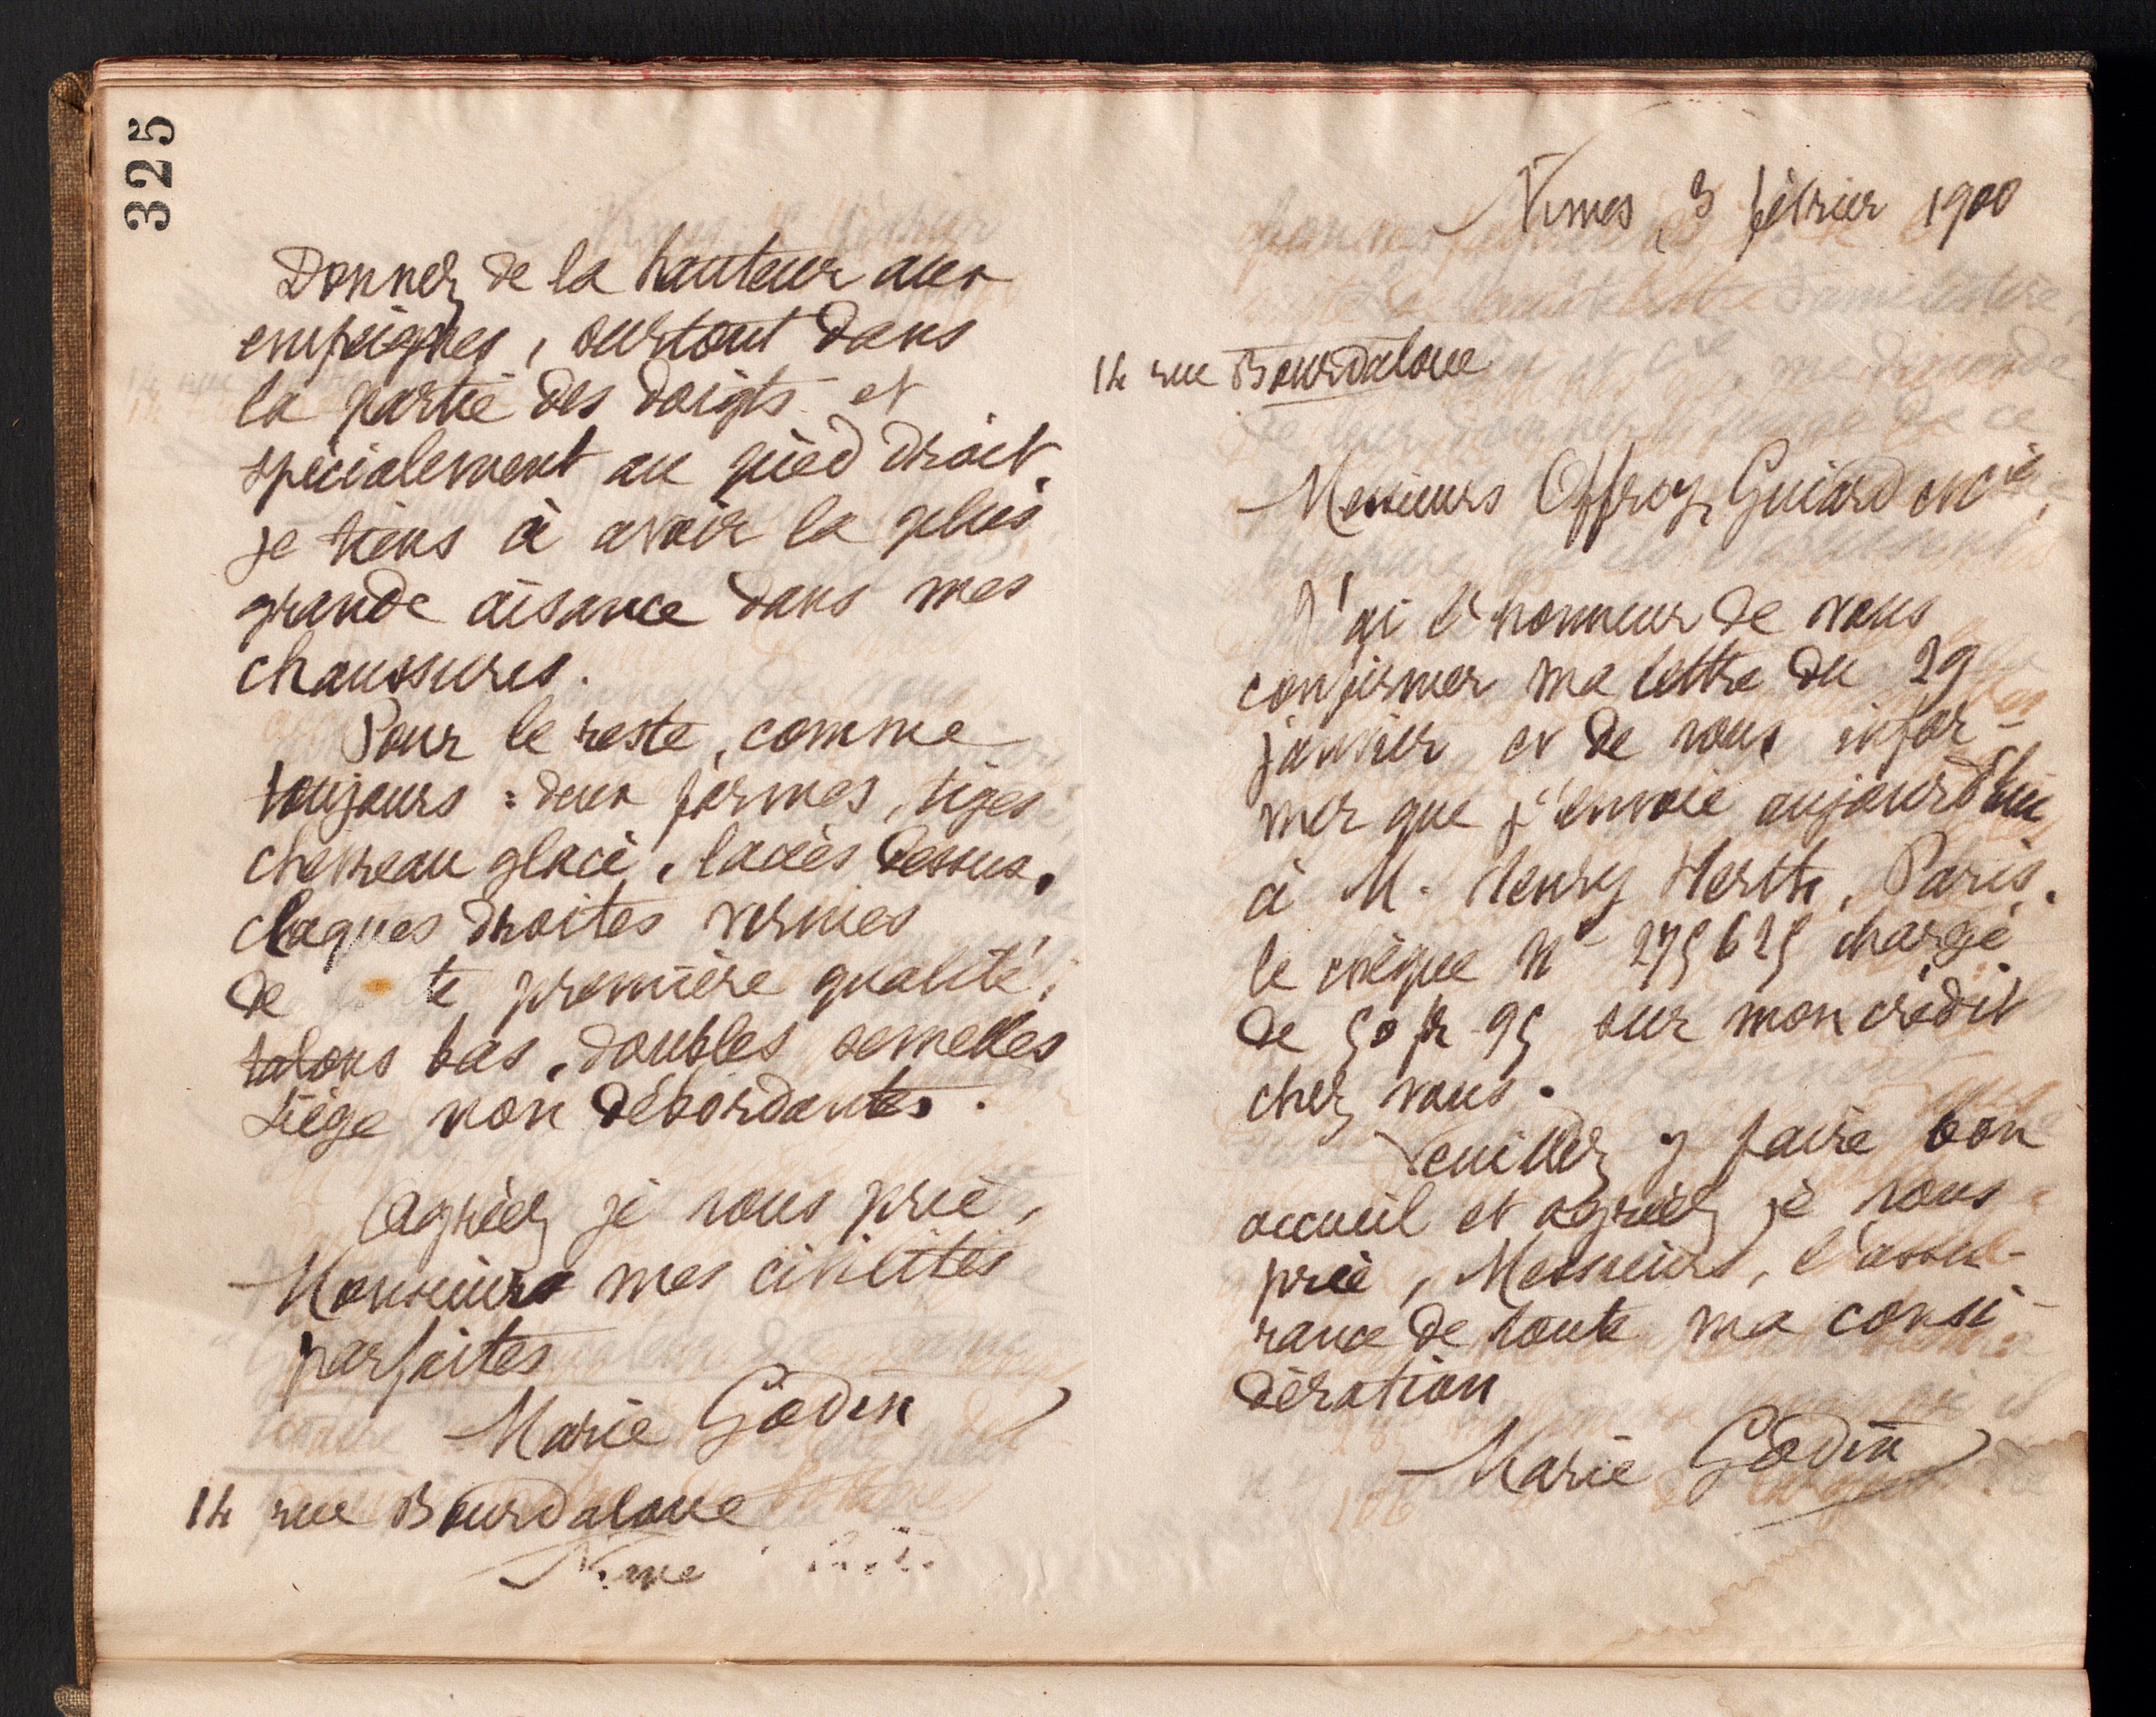 325
Donnez de la hauteur aux
empeignes, surtout dans
la partie des doigts et
spécialement au pied droit.
je tiens à avoir la plus
grande aisance dans mes
chaussures.
Pour le reste, comme
toujours : deux formes, tiges
chevreau glacé, lacées dessus,
claques droites vernies
de te première qualité,
talons bas, doubles semelles
liège non débordantes.
Agréez je vous prie,
Monsieur mes civilités
parfaites
Marie Godin
14 rue Bourdaloue
Nimes 3 février 1900
14 rue Bourdaloue
Messieurs Offroy, Guiard en Cie,
J'ai l'honneur de vous
confirmer ma lettre du 29
janvier et de vous infor-
mer que j'envoie aujourd'hui
à M. Henry Herth, Paris.
le chèque No 275625 chargé
de 50 fr 95 sur mon crédit
chez vous.
Veuillez y faire bon
accueil et agréez je vous
prie, Messieurs, l'assu-
rance de toute ma consi-
dération
Marie Godin